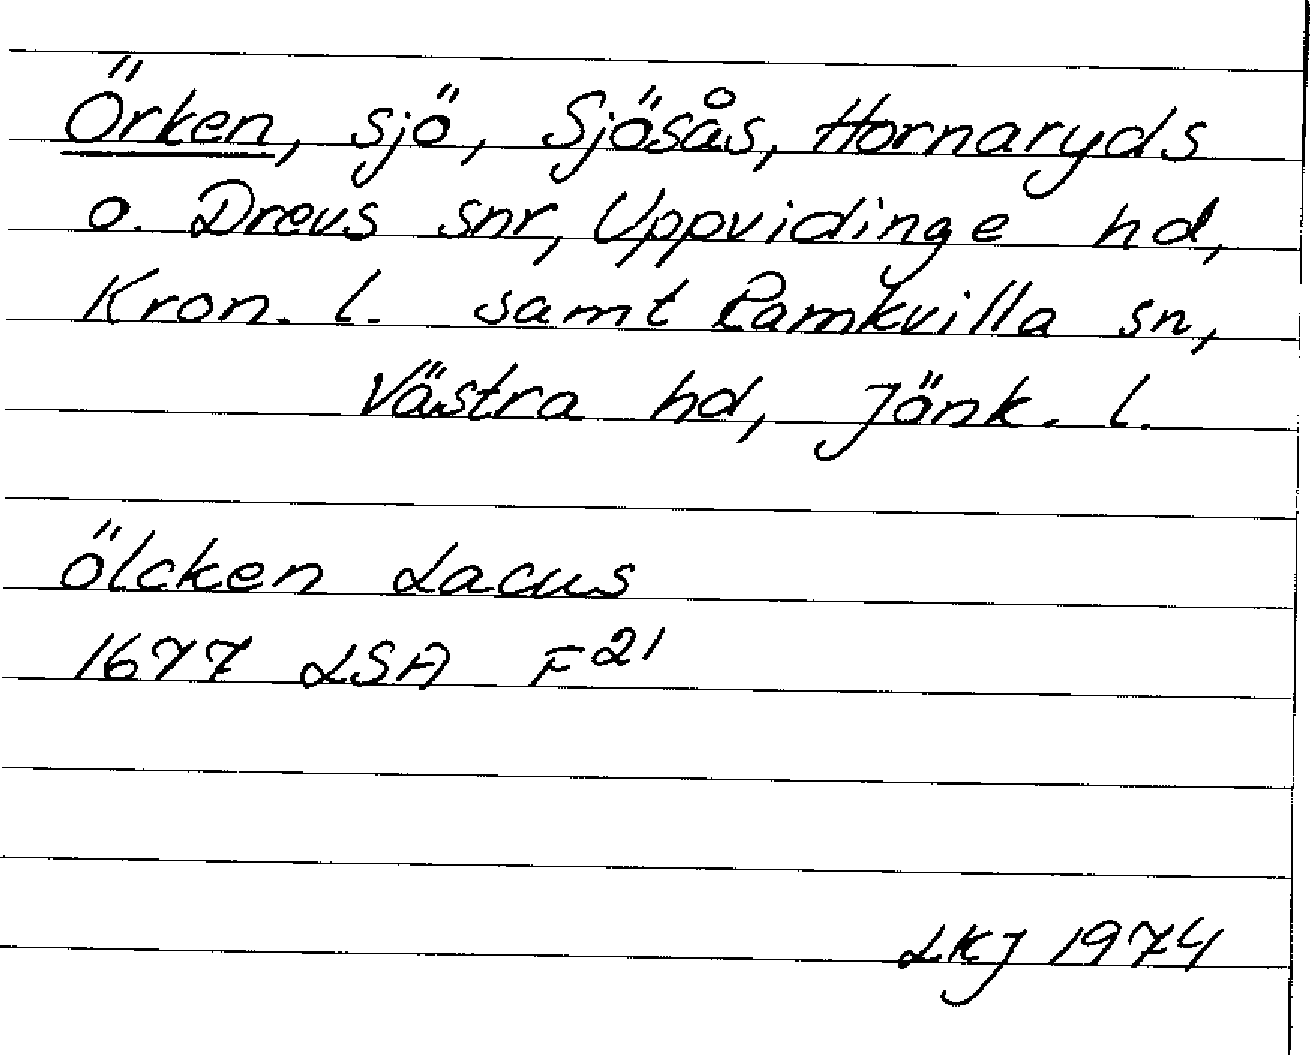 Örken, sjö, Sjösås, Hornaryds
o. Drevs snr, Uppvidinge hd,
Kron. l. samt Ramkvilla sn,
Västra hd, Jönk. l.
ölcken Lacus
1677 LSA F21
LKJ 1974